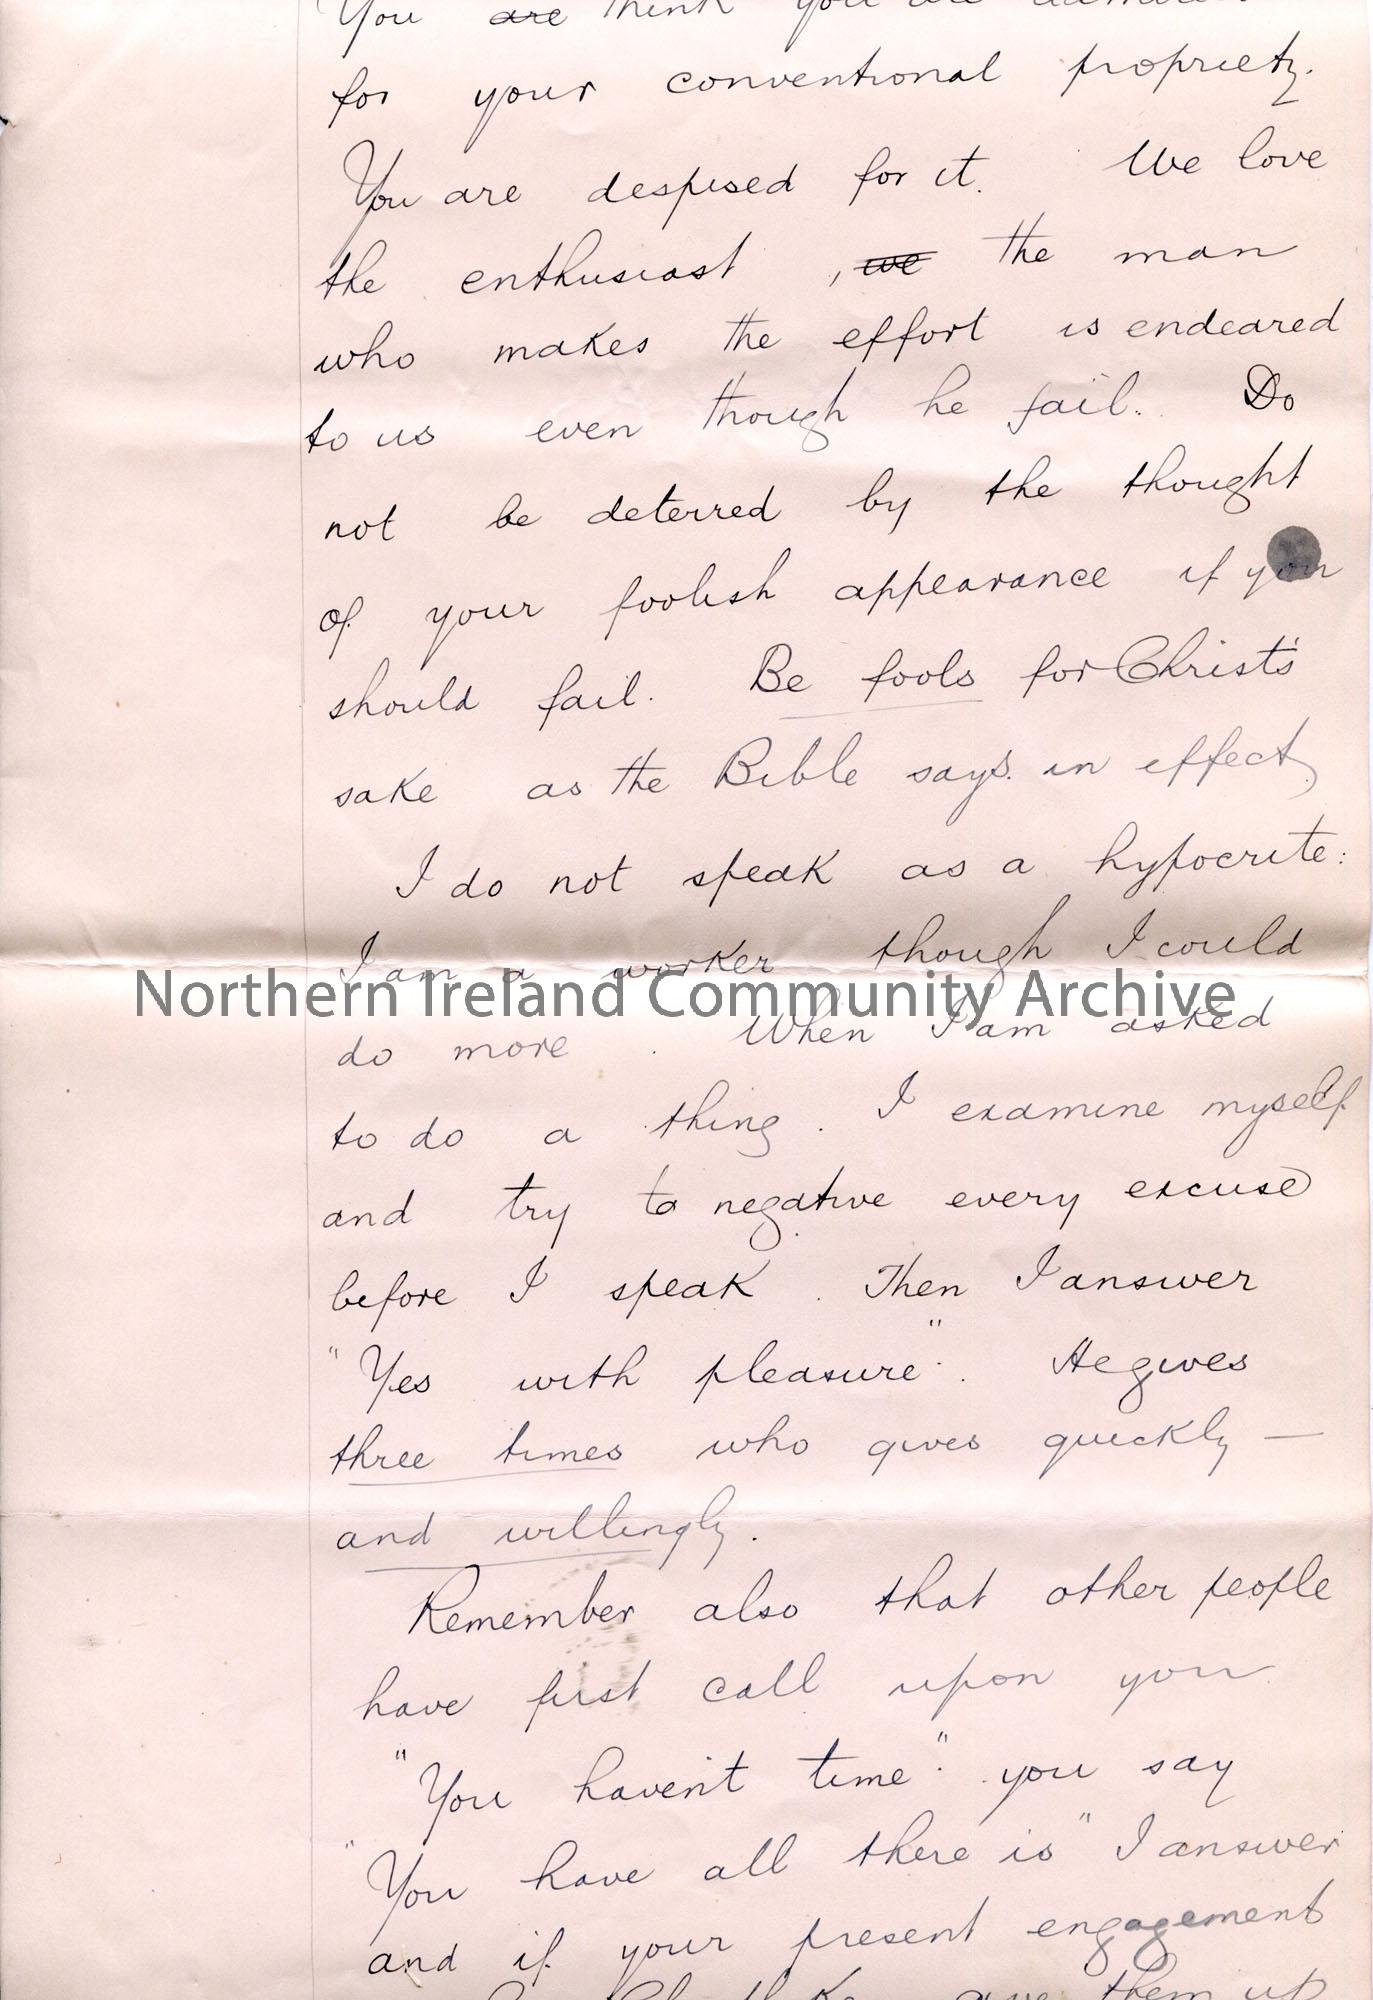 You are think you are admired
for your conventional propriety.
You are despised for it. We love
the enthusiast , we the man
who makes the effort is endeared
to us even though he fail. Do
not be deterred by the thought
of your foolish appearance if you
should fail. Be fools for Christ's
sake as the Bible says. in effect
I do not speak as a hypocrite:
I am a worker though I could
Northern Ireland Community Archive
do more. When I am asked
to do a thing. I examine myself
and try to negative every excuse
before I speak. Then I answer
"Yes with pleasure". He gives
three times who gives quickly —
and willingly.
Remember also that other people
have first call upon you
"You haven't time" you say
"You have all there is" I answer
and if your present engagement
give them up